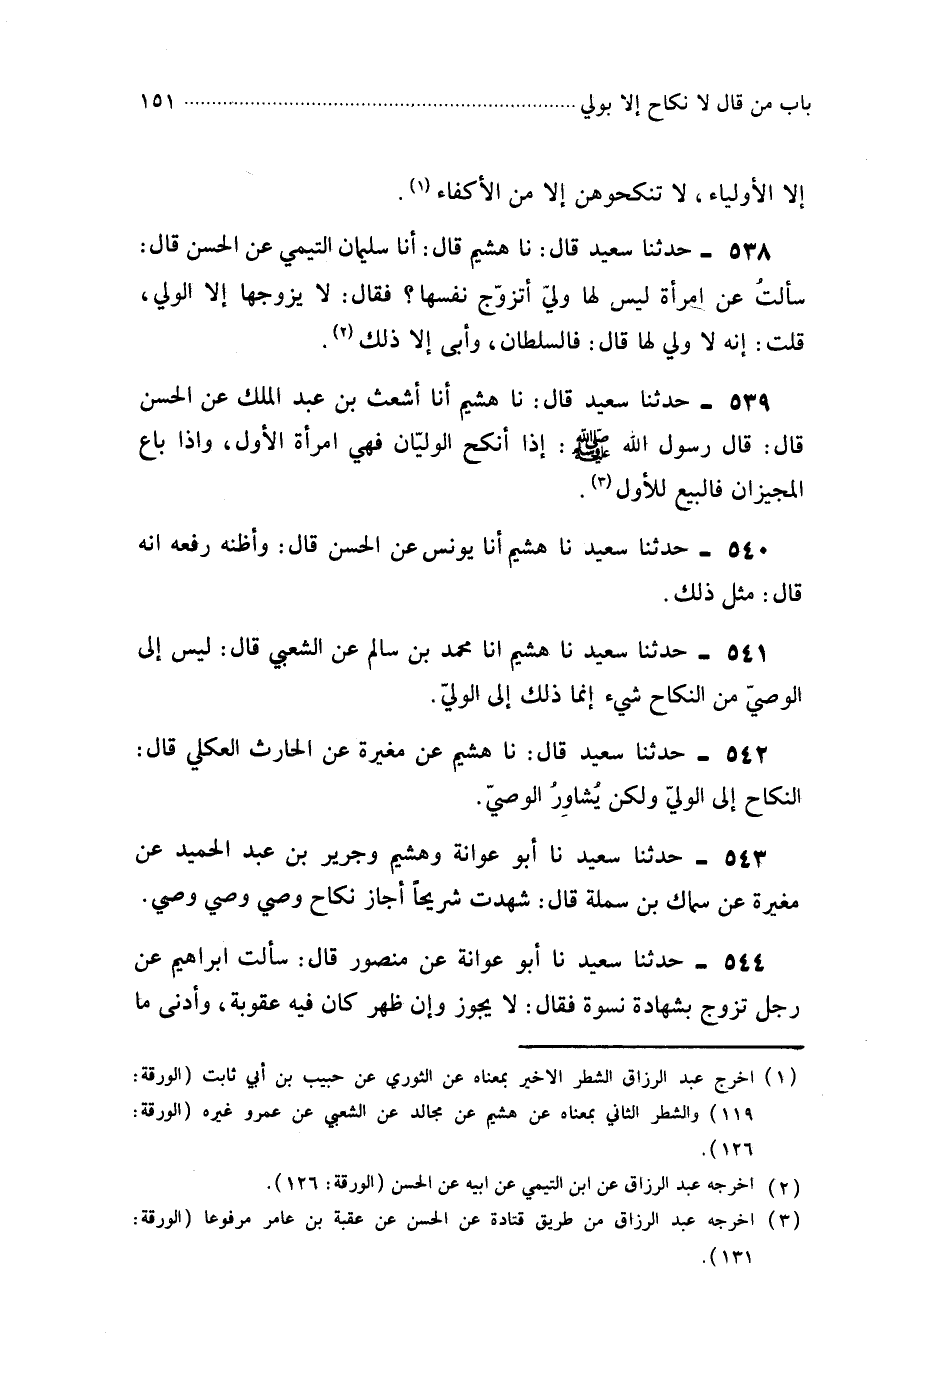 باب من قال لا نكاح إلا بولي ........................................ ١٥١
إلا الأولياء ، لا تنكحوهن إلا من الأكفاء (١) .
٥٣٨ ـ حدثنا سعيد قال : نا هشيم قال : أنا سليمان التيمي عن الحسن قال :
سألتُ عن امرأة ليس لها وليّ أتزوّج نفسها؟ فقال : لا يزوجها إلا الولي ،
قلت : إنه لا ولي لها قال : فالسلطان ، وأبى إلا ذلك (٢) .
٥٣٩ ـ حدثنا سعيد قال : نا هشيم أنا أشعث بن عبد الملك عن الحسن
قال : قال رسول الله ﷺ : إذا أنكح الوليّان فهي امرأة الأول ، واذا باع
المجيزان فالبيع للأول (٣) .
٥٤٠ ـ حدثنا سعيد نا هشيم أنا يونس عن الحسن قال : وأظنه رفعه انه
قال : مثل ذلك .
٥٤١ ـ حدثنا سعيد نا هشيم انا محمد بن سالم عن الشعبي قال : ليس إلى
الوصيّ من النكاح شيء إنما ذلك إلى الوليّ .
٥٤٢ ـ حدثنا سعيد قال : نا هشيم عن مغيرة عن الحارث العكلي قال :
النكاح إلى الوليّ ولكن يُشاورُ الوصيّ .
٥٤٣ ـ حدثنا سعيد نا أبو عوانة وهشيم وجرير بن عبد الحميد عن
مغيرة عن سماك بن سملة قال : شهدت شريحاً أجاز نكاح وصي وصي وصي .
٥٤٤ ـ حدثنا سعيد نا أبو عوانة عن منصور قال : سألت ابراهيم عن
رجل تزوج بشهادة نسوة فقال : لا يجوز وإن ظهر كان فيه عقوبة ، وأدنى ما
(١) اخرج عبد الرزاق الشطر الاخير بمعناه عن الثوري عن حبيب بن أبي ثابت (الورقة :
١١٩) والشطر الثاني بمعناه عن هشيم عن مجالد عن الشعبي عن عمرو غيره (الورقة :
١٢٦).
(٢) اخرجه عبد الرزاق عن ابن التيمي عن ابيه عن الحسن (الورقة : ١٢٦).
(٣) اخرجه عبد الرزاق من طريق قتادة عن الحسن عن عقبة بن عامر مرفوعا (الورقة :
١٣١).